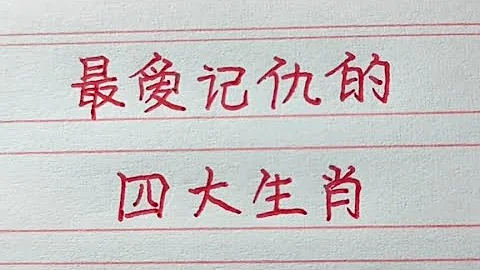 最爱记仇的
四大生肖